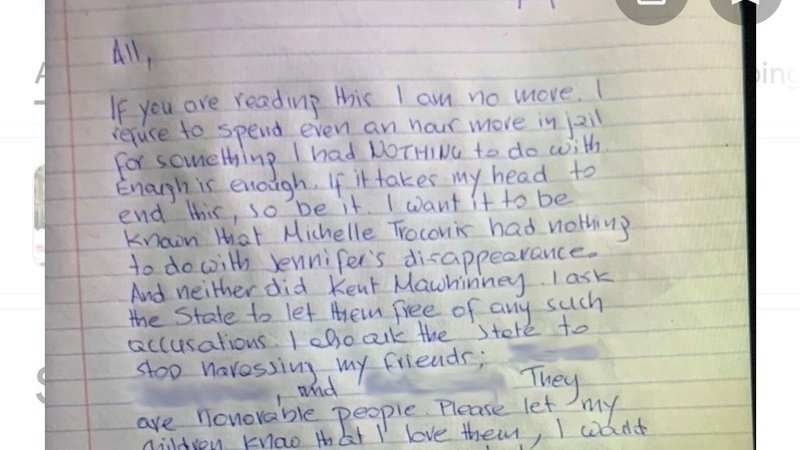 All,
If you are reading this I am no more. I
refuse to spend even an hour more in jail
for something I had NOTHING to do with.
Enough is enough. If it takes my head to
end this, so be it. I want it to be
known that Michelle Troconis had nothing
to do with Jennifer's disappearance.
And neither did Kent Mawhinney. I ask
the State to let them free of any such
accusations. I also ask the State to
stop harassing my friends;
, and They
are honorable people. Please let my
children know that I love them, I would